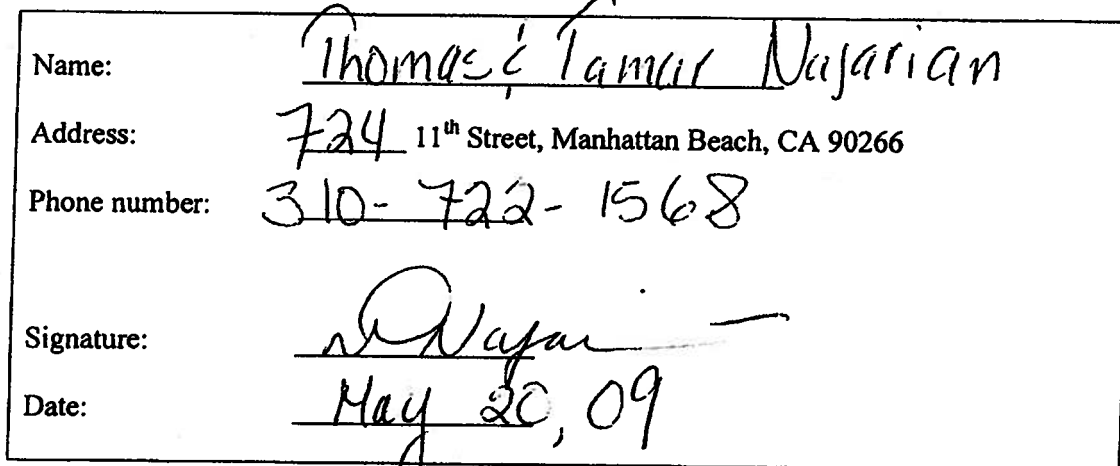 Name: Thomas & Tamar Najarian
Address: 724 11th Street, Manhattan Beach, CA 90266
Phone number: 310-722-1568
Signature: Najar
Date: May 20, 09